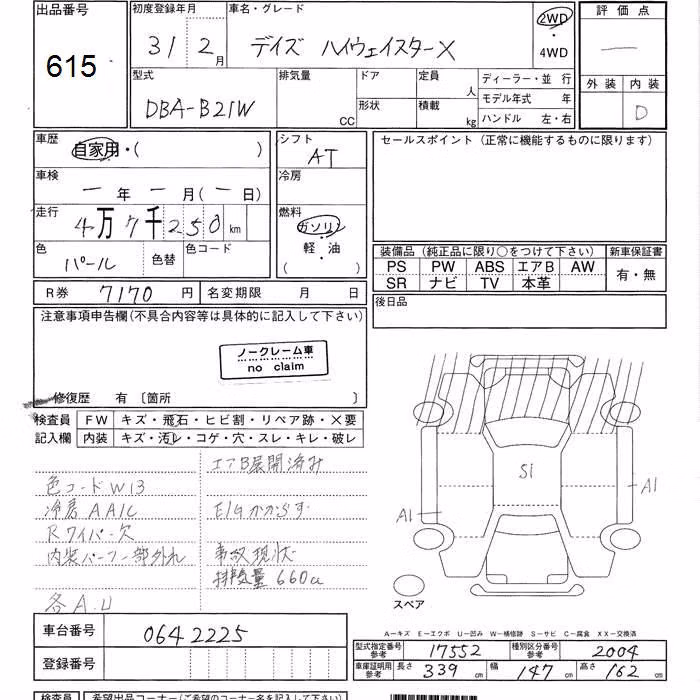 出品番号 初度登録年月 車名・グレード 2WD・4WD 評価点
615 31 2月 デイズ ハイウェイスターX —
型式 排気量 ドア 定員 ディーラー・並行 外装 内装
DBA-B21W CC 形状 積載 人 kg モデル年式 年 ハンドル 左・右 D
車歴 自家用・( ) シフト AT セールスポイント(正常に機能するものに限ります)
車検 — 年 — 月(— 日) 冷房
走行 4万7千250km 燃料 ガソリン・軽・油( )
色 パール 色替 色コード 装備品(純正品に限り○をつけて下さい) 新車保証書
PS PW ABS エアB AW 有・無
SR ナビ TV 本革
R券 7170円 名変期限 月 日 後日品
注意事項申告欄(不具合内容等は具体的に記入して下さい)
ノークレーム車
no claim
修復歴 有 〔箇所 〕
検査員 FW キズ・飛石・ヒビ割・リペア跡・×要
記入欄 内装 キズ・汚レ・コゲ・穴・スレ・キレ・破レ
エアB展開済み
色コードW13
冷房AAC E/Gかからず
Rワイパー欠
内装パーツ一部外れ 事故現状
排気量660cc
各A.U
Si
A1 A1
スペア
A—キズ E—エクボ U—凹み W—補修跡 S—サビ C—腐食 XX—交換済
車台番号 0642225 型式指定番号 参考 17552 種別区分番号 参考 2004
登録番号 車庫証明用 参考 長さ 339cm 幅 147cm 高さ 162cm
検査員 希望出品コーナー(ご希望のコーナー名を記入して下さい)